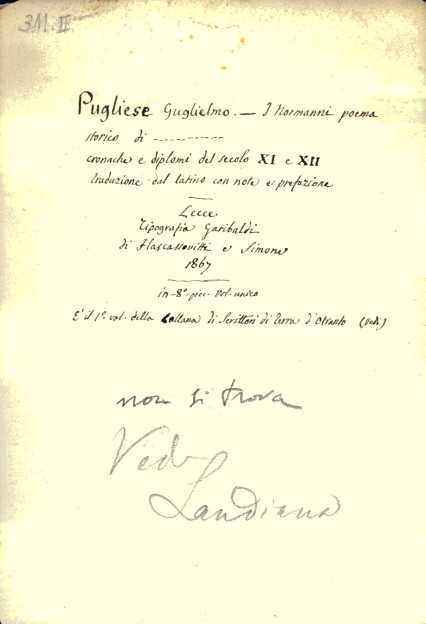 3M. II
Pugliese Guglielmo. — I Normanni poema
storico di ----------
cronache e diplomi del secolo XI e XII
traduzione dal latino con note e prefazione
Lecce
Tipografia Garibaldi
di Flascassovitti e Simone
1867
in-8°. picc. vol. unico
È il 1°. vol. della Collana di Scrittori di Terra d'Otranto (Vedi)
non si trova
Vedi
Landiana